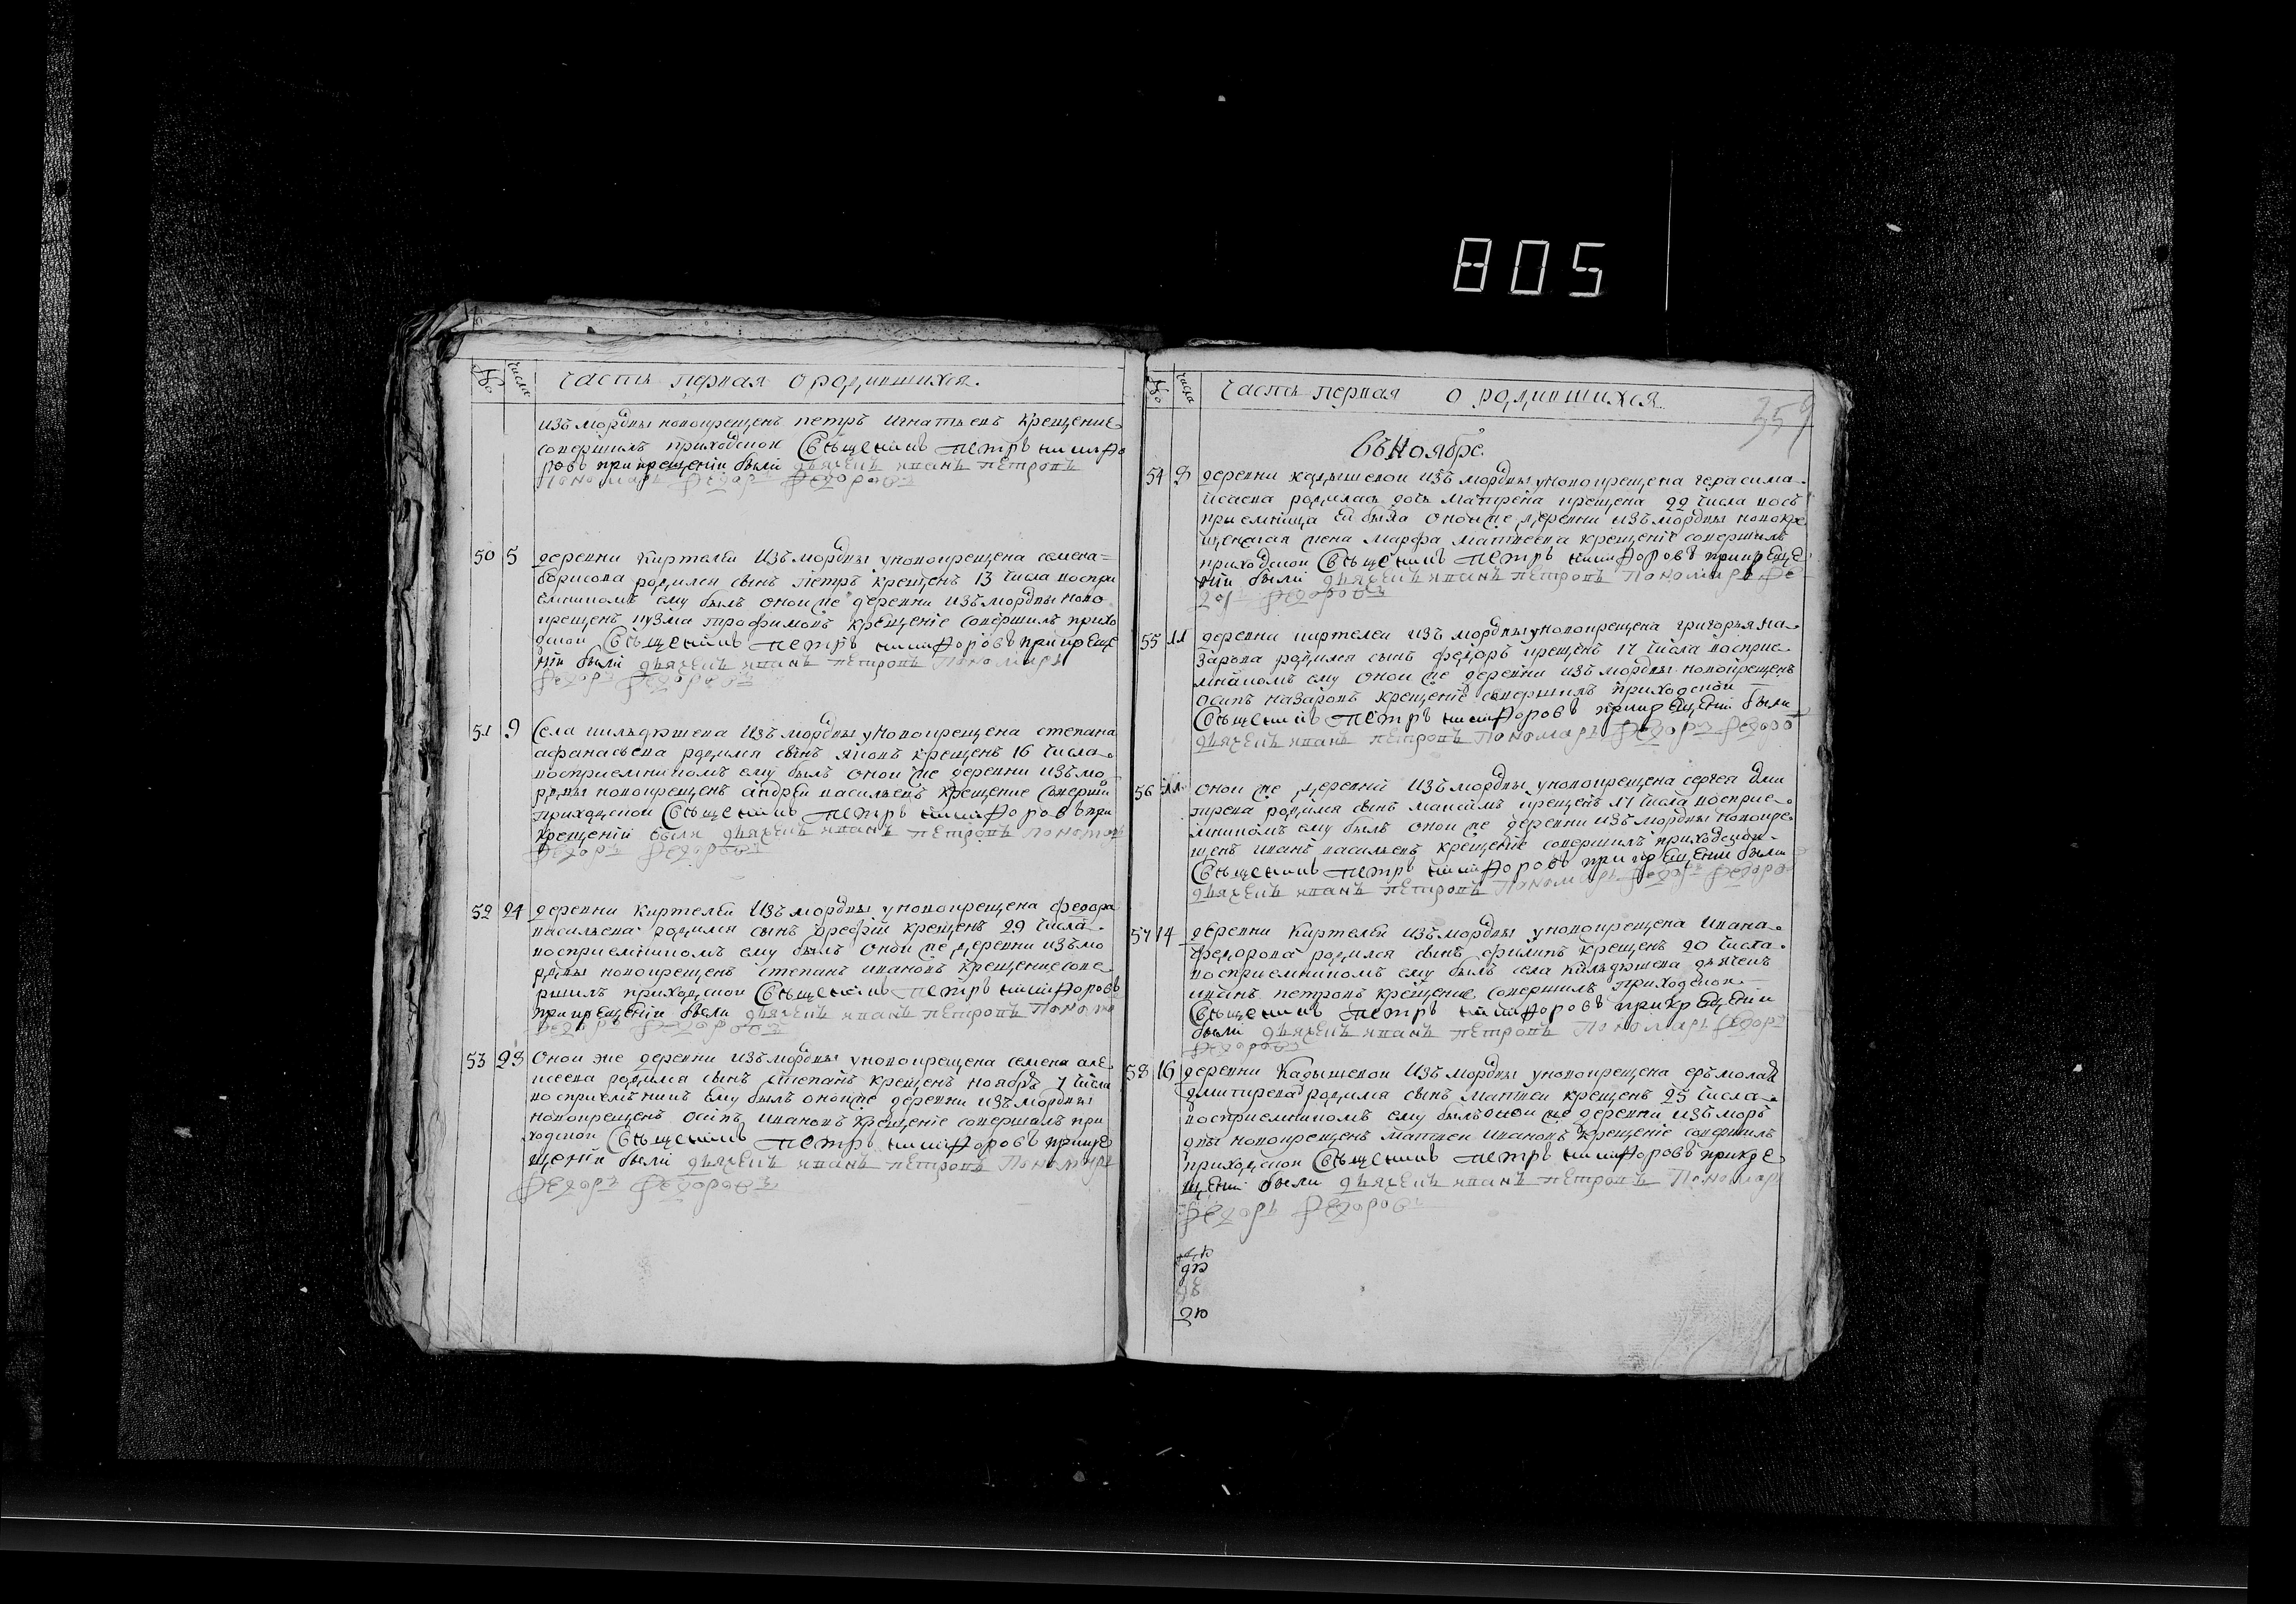 805
№ числа Часть первая о родившихся.
изъ мордвы новокрещенъ петръ игнатьевъ крещение
совершилъ приходской Священникъ петръ никифо
ровъ при крещеніи были дьячекъ иванъ петровъ
пономарь Федоръ Федоровъ
50 5 деревни Киртелеи изъ мордвы у новокрещена семена
борисова родился сынъ петръ крещенъ 13 числа воспри
емникомъ ему былъ оной же деревни изъ мордвы ново
крещенъ кузма трофимовъ крещеніе совершилъ прихо
дской Священникъ петръ никифоровъ при креще
ніи были дьячекъ иванъ петровъ пономарь
Федоръ Федоровъ
51 9 Села кильдюшева изъ мордвы у новокрещена степана
афанасьева родился сынъ яковъ крещенъ 16 числа
восприемникомъ ему былъ оной же деревни изъ мо
рдвы новокрещенъ андреи васильевъ крещение соверши
приходской Священникъ петръ никифоровъ при
крещеніи были дьячекъ иванъ петровъ пономарь
Федоръ Федоровъ
52 24 деревни Киртелеи изъ мордвы у новокрещена федора
васильева родился сынъ крещенъ 29 числа
восприемникомъ ему былъ оной же деревни изъ мо
рдвы новокрещенъ степанъ ивановъ крещение сове
ршилъ приходской Священникъ петръ никифоровъ
при крещеніи были дьячекъ иванъ петровъ понома
Федоръ Федоровъ
53 28 Оной же деревни изъ мордвы у новокрещена семена але
ксеева родился сынъ степанъ крещенъ ноября 7 числа
восприемникъ ему былъ оной же деревни изъ мордвы
новокрещенъ осипъ ивановъ крещеніе совершилъ при
ходской Священникъ петръ никифоровъ при кре
щеніи были дьячекъ иванъ петровъ пономарь
Федоръ Федоровъ
№ числа Часть первая о родившихся
359
Въ Ноябре.
54 8 деревни кадышевой изъ мордвы у новокрещена герасима
исаева родилась дочь матрена крещена 22 числа вос
приемница ей была оной же деревни изъ мордвы новокре
щенская жена марфа матвеева крещеніе совершилъ
приходской Священникъ петръ никифоровъ при креще
ніи были дьячекъ иванъ петровъ пономарь Фе
доръ Федоровъ
55 11 деревни киртелеи изъ мордвы у новокрещена григорья на
зарова родился сынъ федоръ крещенъ 17 числа восприе
мникомъ ему оной же деревни изъ мордвы новокрещенъ
осипъ назаровъ крещеніе совершилъ приходской
Священникъ петръ никифоровъ при крещеніи были
дьячекъ иванъ петровъ пономарь Федоръ Федоро
56 11 оной же деревни изъ мордвы у новокрещена сергея дми
треева родился сынъ максимъ крещенъ 17 числа восприе
мникомъ ему былъ оной же деревни изъ мордвы новокре
щенъ иванъ васильевъ крещеніе совершилъ приходской
Священникъ петръ никифоровъ при крещеніи были
дьячекъ иванъ петровъ пономарь Федоръ Федоро
57 14 деревни Киртелеи изъ мордвы у новокрещена ивана
федорова родился сынъ филипъ крещенъ 20 числа
восприемникомъ ему былъ села кильдюшева дьячекъ
иванъ петровъ крещение совершилъ приходской
Священникъ петръ никифоровъ при крещении
были дьячекъ иванъ петровъ пономарь Федоръ
Федоровъ
58 16 деревни Кадышевой изъ мордвы у новокрещена ермолая
дмитреева родился сынъ матвеи крещенъ 25 числа
восприемникомъ ему былъ оной же деревни изъ мор
двы новокрещенъ матвеи ивановъ крещеніе совершилъ
приходской Священникъ петръ никифоровъ при кре
щеніи были дьячекъ иванъ петровъ пономарь
Федоръ Федоровъ